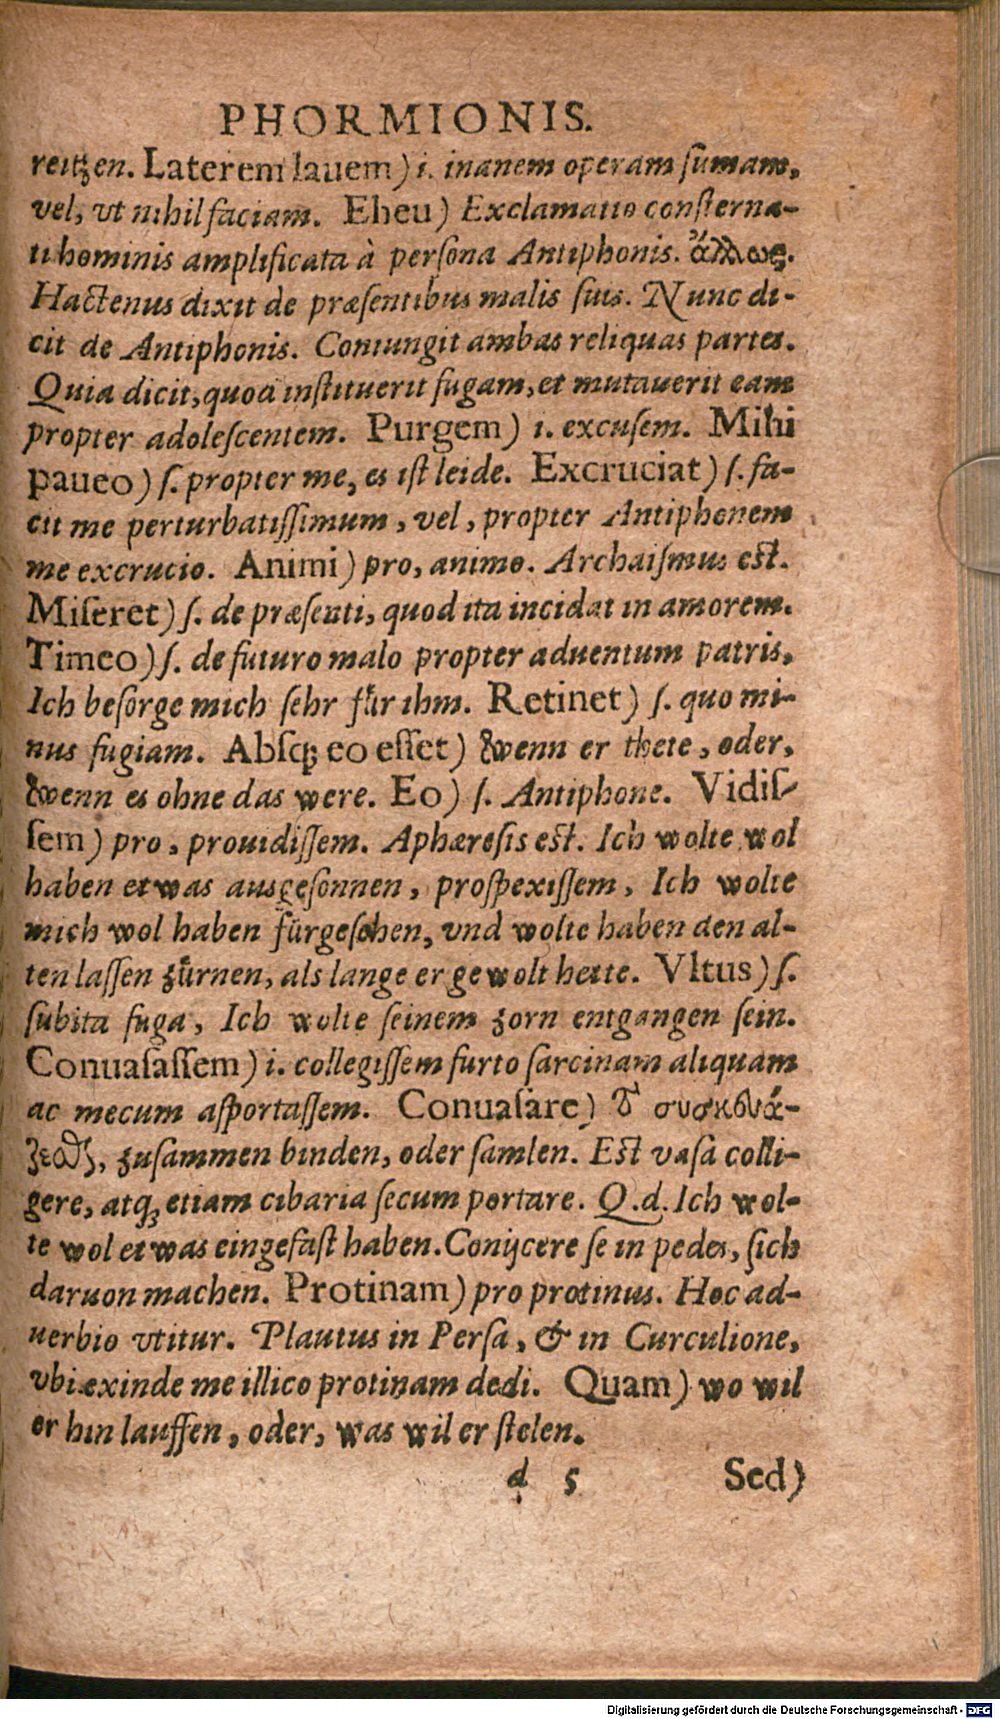 PHORMIONIS.
reitzen. Laterem lauem) i. inanem operam ſumam,
vel, vt nihil faciam. Eheu) Exclamatio conſterna-
ti hominis amplificata à perſona Antiphonis. ἄλλως.
Hactenus dixit de præſentibus malis ſuis. Nunc di-
cit de Antiphonis. Coniungit ambas reliquas partes.
Quia dicit, quod inſtituerit fugam, et mutauerit eam
propter adoleſcentem. Purgem) i. excuſem. Mihi
paueo) ſ. propter me, es iſt leide. Excruciat) ſ. fa-
cit me perturbatiſſimum, vel, propter Antiphonem
me excrucio. Animi) pro, animo. Archaiſmus eſt.
Miſeret) ſ. de præſenti, quod ita incidat in amorem.
Timeo) ſ. de futuro malo propter aduentum patris,
Ich beſorge mich ſehr für ihm. Retinet) ſ. quo mi-
nus fugiam. Abſq; eo eſſet) wenn er thete, oder,
wenn es ohne das were. Eo) ſ. Antiphone. Vidiſ-
ſem) pro, prouidiſſem. Aphæreſis eſt. Ich wolte wol
haben etwas ausgeſonnen, proſpexiſſem, Ich wolte
mich wol haben fürgeſehen, vnd wolte haben den al-
ten laſſen zürnen, als lange er gewolt hette. Vltus) ſ.
ſubita fuga, Ich wolte ſeinem zorn entgangen ſein.
Conuaſaſſem) i. collegiſſem furto ſarcinam aliquam
ac mecum aſportaſſem. Conuaſare) τ͂ συσκευά-
ζεσθαι, zuſammen binden, oder ſamlen. Eſt vaſa colli-
gere, atq; etiam cibaria ſecum portare. Q.d. Ich wol-
te wol etwas eingefaſt haben. Conijcere ſe in pedes, ſich
daruon machen. Protinam) pro protinus. Hoc ad-
uerbio vtitur. Plautus in Perſa, & in Curculione,
vbi: exinde me illico protinam dedi. Quam) wo wil
er hin lauffen, oder, was wil er ſtelen.
d 5 Sed)
Digitalisierung gefördert durch die Deutsche Forschungsgemeinschaft - DFG